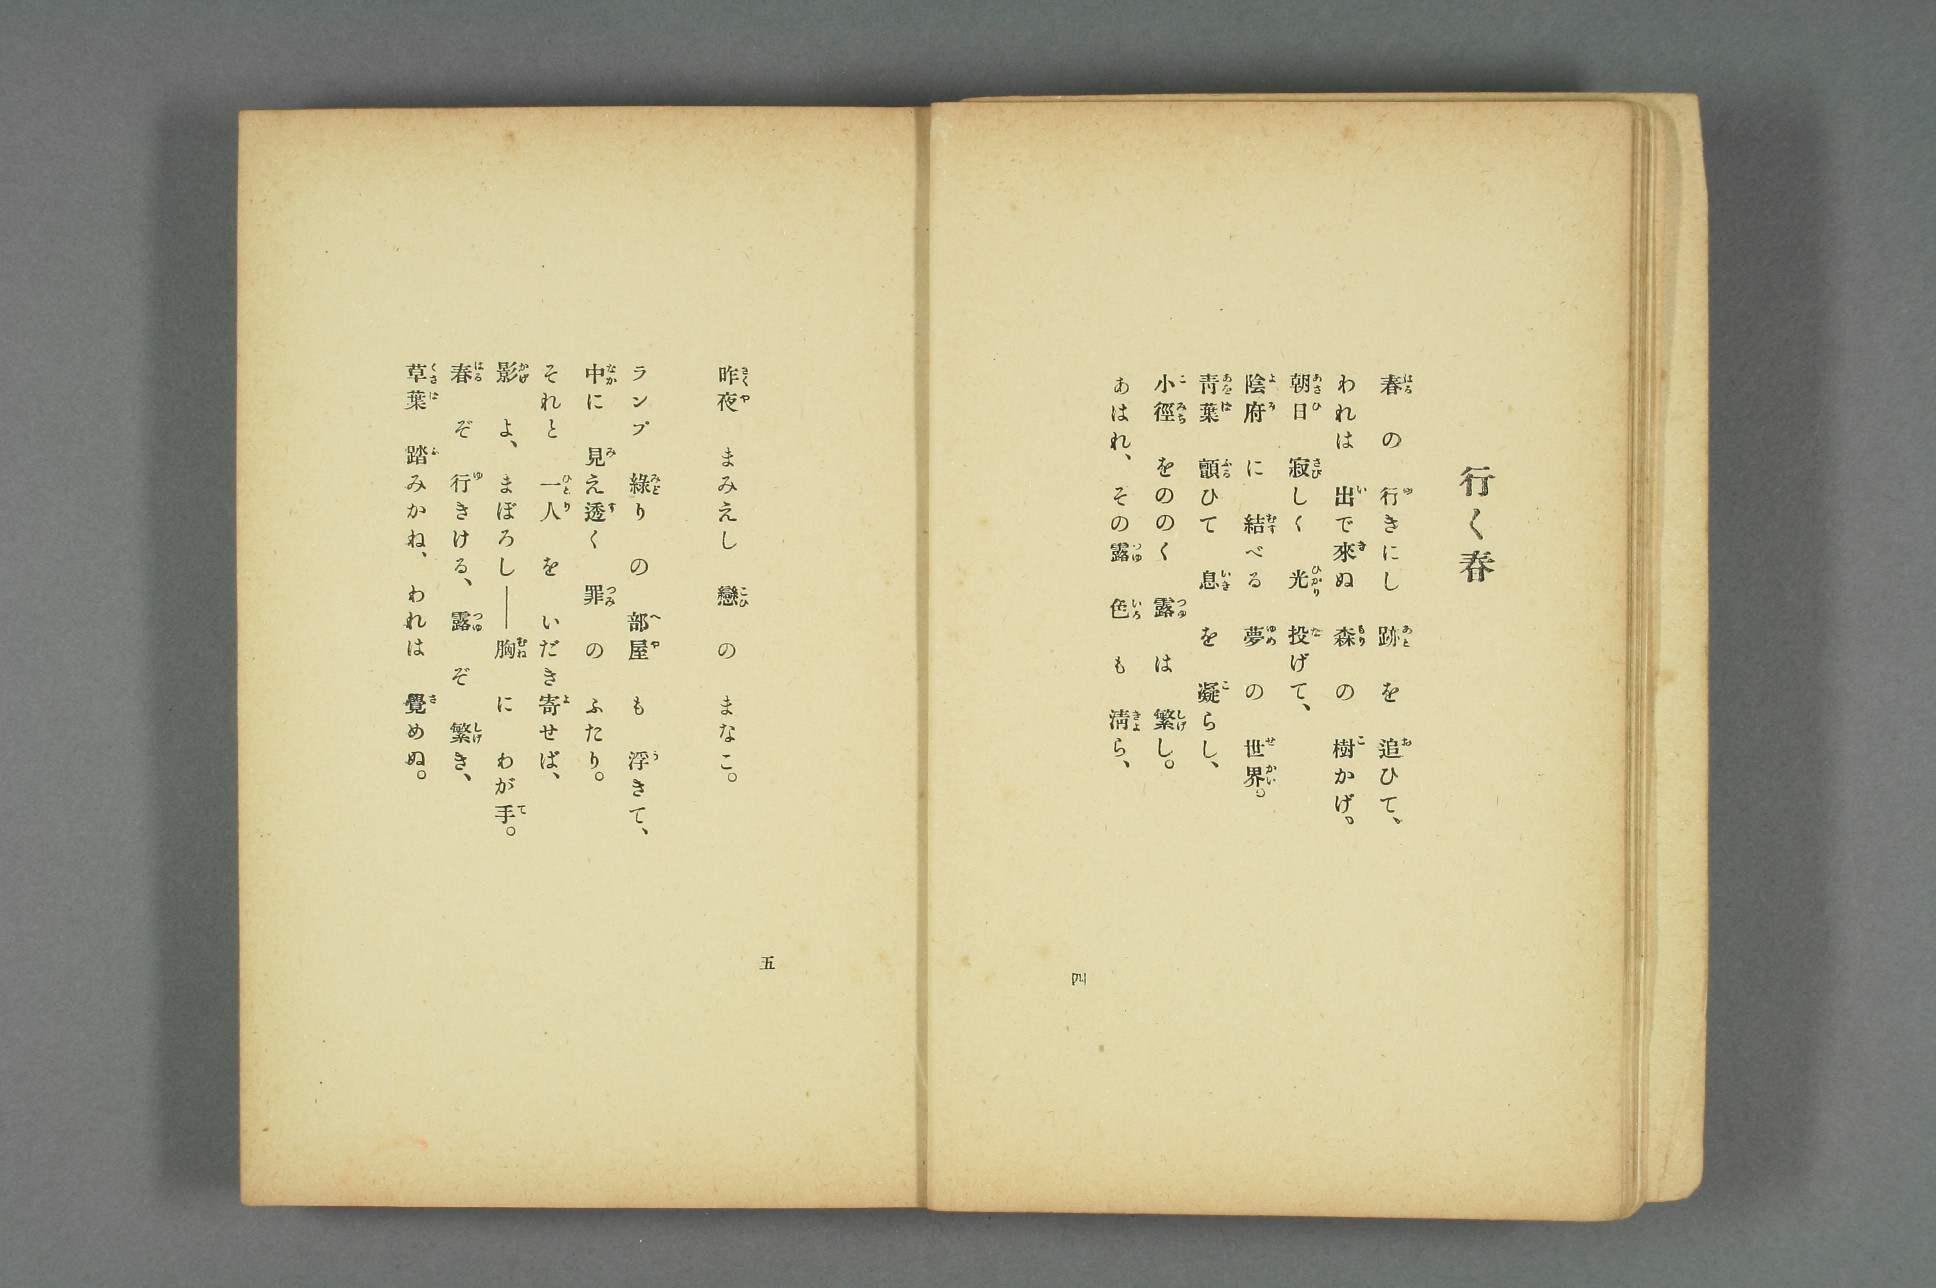 行く春
春の行きにし跡を追ひて、
われは出で來ぬ森の樹かげ。
朝日寂しく光投げて、
陰府に結べる夢の世界。
靑葉顫ひて息を凝らし、
小徑をののく露は繁し。
あはれ、その露色も淸ら、
四
昨夜まみえし戀のまなこ。
ランプ綠りの部屋も浮きて、
中に見え透く罪のふたり。
それと一人をいだき寄せば、
影よ、まぼろし――胸にわが手。
春ぞ行きける、露ぞ繁き、
草葉踏みかね、われは覺めぬ。
五